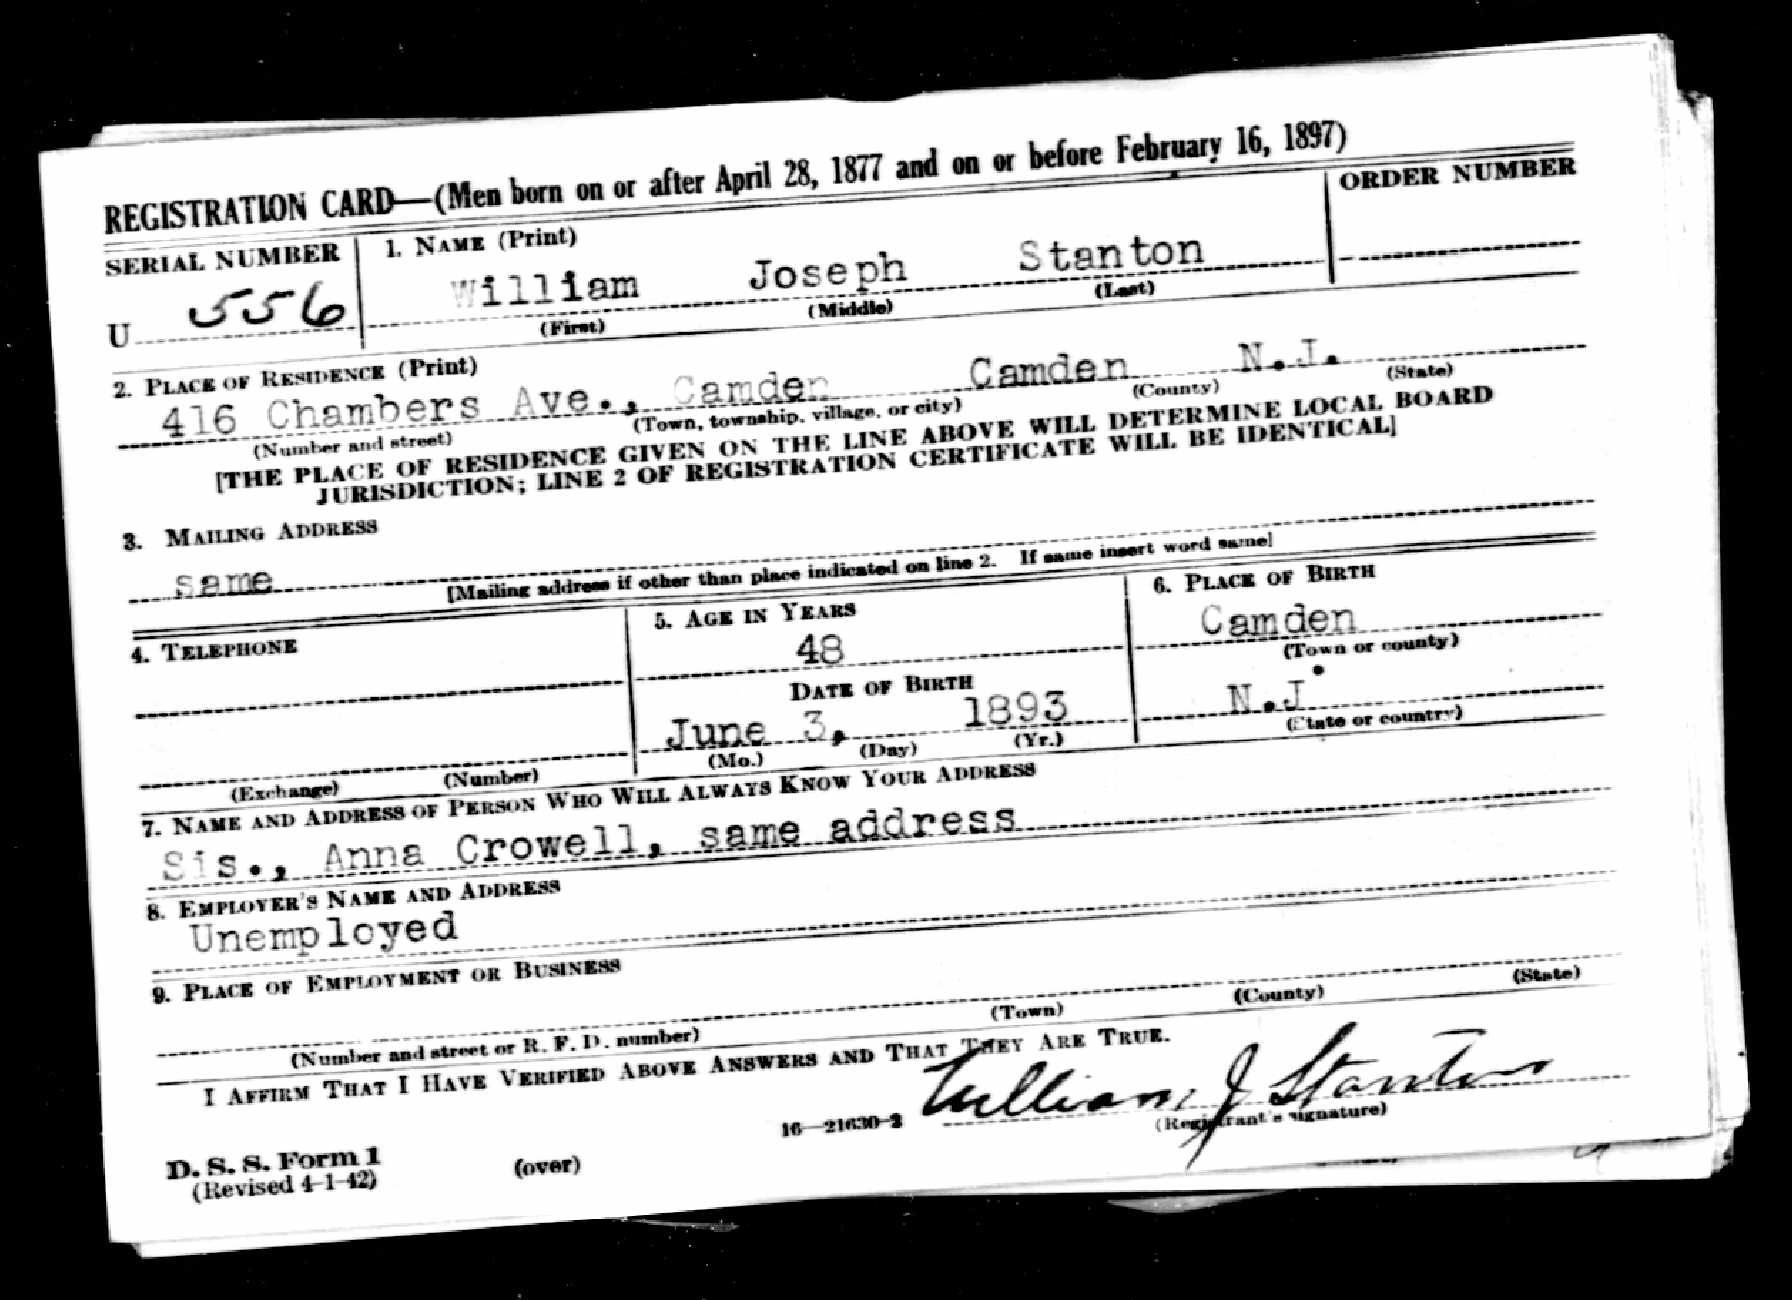 REGISTRATION CARD—(Men born on or after April 28, 1877 and on or before February 16, 1897)
SERIAL NUMBER 1. NAME (Print) ORDER NUMBER
U 556 William Joseph Stanton
(First) (Middle) (Last)
2. PLACE OF RESIDENCE (Print)
416 Chambers Ave., Camden Camden N.J.
(Number and street) (Town, township, village, or city) (County) (State)
[THE PLACE OF RESIDENCE GIVEN ON THE LINE ABOVE WILL DETERMINE LOCAL BOARD
JURISDICTION; LINE 2 OF REGISTRATION CERTIFICATE WILL BE IDENTICAL]
3. MAILING ADDRESS
same
[Mailing address if other than place indicated on line 2. If same insert word same]
4. TELEPHONE 5. AGE IN YEARS 6. PLACE OF BIRTH
48 Camden
(Town or county)
DATE OF BIRTH
June 3, 1893 N.J.
(Exchange) (Number) (Mo.) (Day) (Yr.) (State or country)
7. NAME AND ADDRESS OF PERSON WHO WILL ALWAYS KNOW YOUR ADDRESS
Sis., Anna Crowell, same address
8. EMPLOYER'S NAME AND ADDRESS
Unemployed
9. PLACE OF EMPLOYMENT OR BUSINESS
(Number and street or R. F. D. number) (Town) (County) (State)
I AFFIRM THAT I HAVE VERIFIED ABOVE ANSWERS AND THAT THEY ARE TRUE.
William J Stanton
D. S. S. Form 1 (over) 16—21630-2 (Registrant's signature)
(Revised 4-1-42)